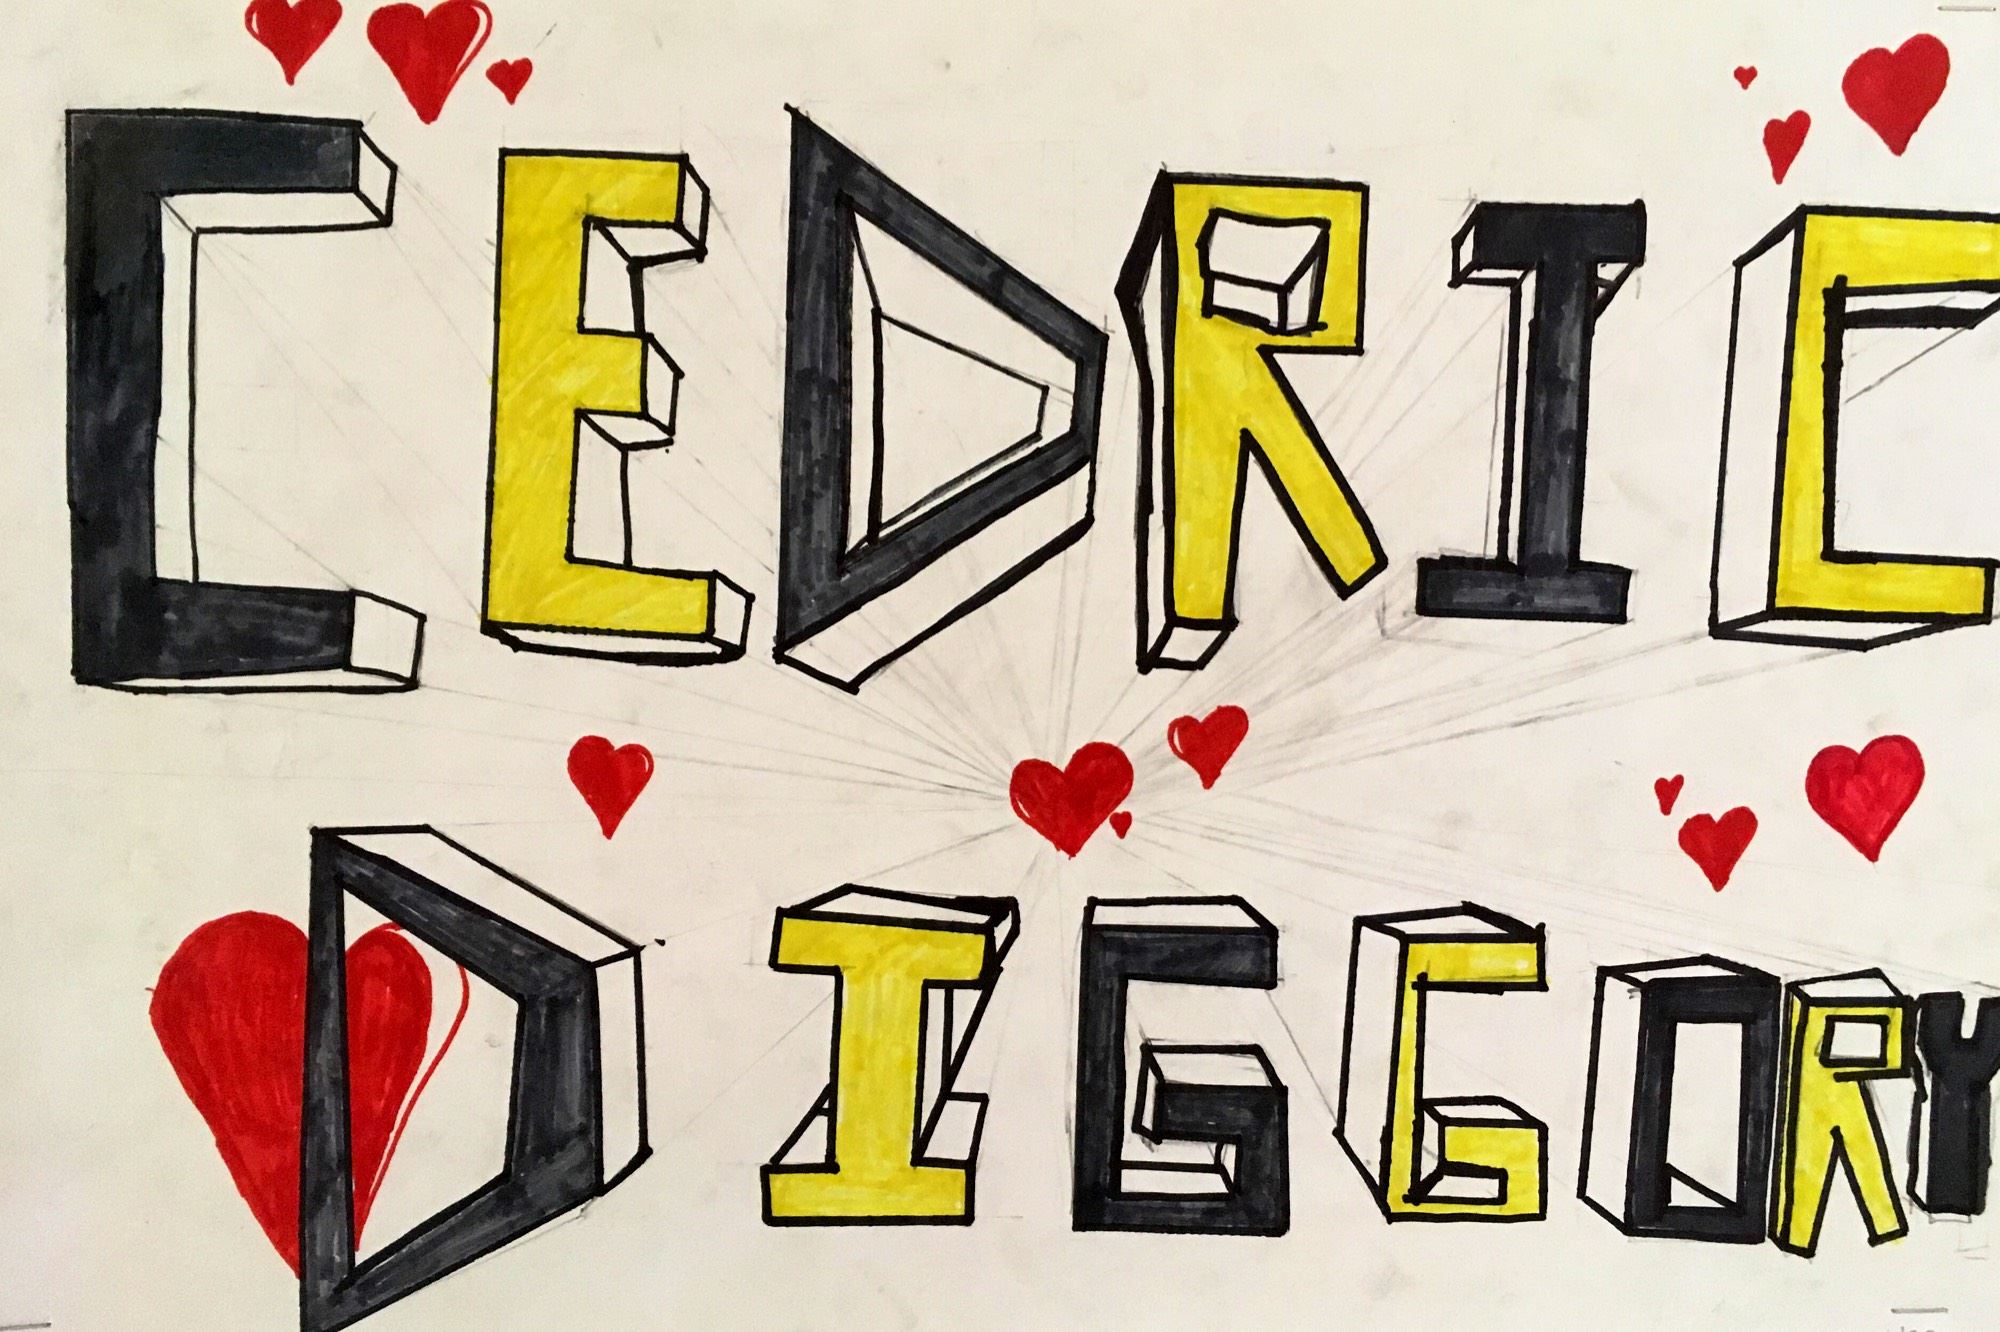 CEDRIC
DIGGORY